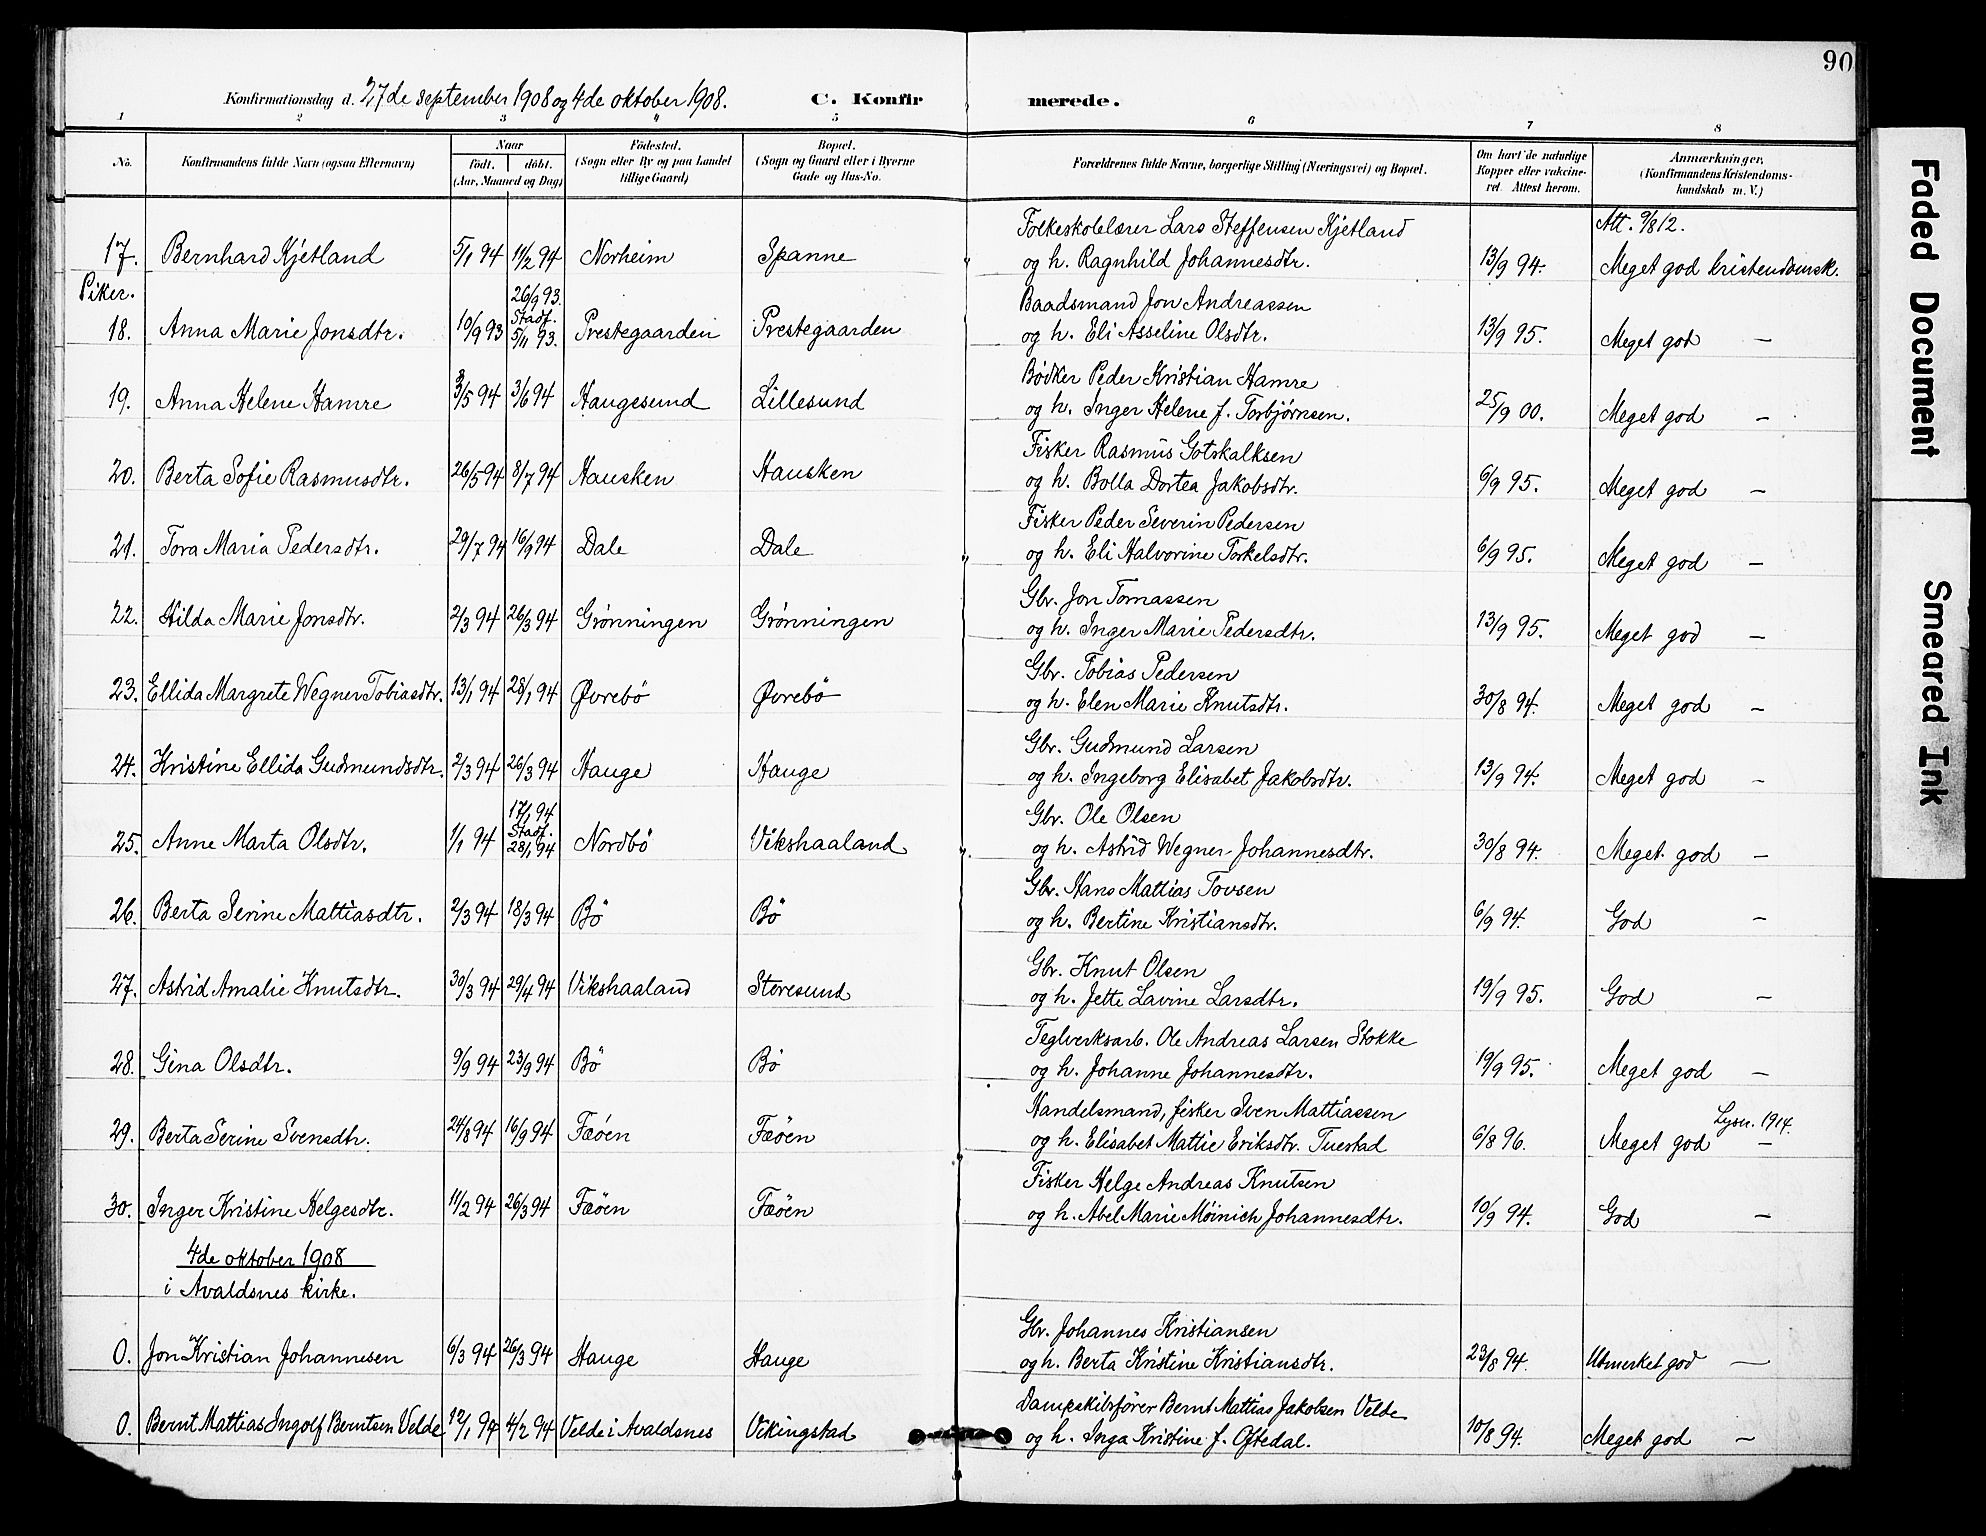 90
Konfirmationsdag d. 27de september 1908 og 4de oktober 1908. C. Konfirmerede.
1 2 3 4 5 6 7 8
No. Konfirmandens fulde Navn (ogsaa Efternavn) Naar født. døbt. (Aar, Maaned og Dag) Fødested. (Sogn eller By og paa Landet tillige Gaard) Bopæl. (Sogn og Gaard eller i Byerne Gade og Hus-No. Forældrenes fulde Navne, borgerlige Stilling (Næringsvei) og Bopæl. Om havt de naturlige Kopper eller vakcineret. Attest herom. Anmærkninger, (Konfirmandens Kristendomskundskab m. V.)
Folkeskolelærer Lars Steffensen Kjetland Att. 9/8 12.
17. Bernhard Kjetland 5/1 94 11/2 94 Norheim Spanne og h. Ragnhild Johannesdtr. 13/9 94. Meget god kristendomsk.
Piker. 26/9 93. Baadsmand Jon Andreassen
18. Anna Marie Jonsdtr. 10/9 93 Stadf. 5/11 93. Prestegaarden Prestegaarden og h. Eli Asseline Olsdtr. 13/9 95. Meget god —
Bødker Peder Kristian Hamre
19. Anna Helene Hamre 3/5 94 3/6 94 Haugesund Lillesund og h. Inger Helene f. Torbjørnsen. 25/9 00. Meget god —
Fisker Rasmus Gotskalksen
20. Berta Sofie Rasmusdtr. 26/5 94 8/7 94 Hausken Hausken og h. Bolla Dortea Jakobsdtr. 6/9 95. Meget god —
Fisker Peder Severin Pedersen
21. Tora Maria Pedersdtr. 29/7 94 16/9 94 Dale Dale og h. Eli Halvorine Torkelsdtr. 6/9 95. Meget god —
Gbr. Jon Tomassen
22. Hilda Marie Jonsdtr. 2/3 94 26/3 94 Grønningen Grønningen og h. Inger Marie Pedersdtr. 13/9 95. Meget god —
Gbr. Tobias Pedersen
23. Ellida Margrete Wegner Tobiasdtr. 13/1 94 28/1 94 Øvrebö Øvrebö og h. Elen Marie Knutsdtr. 30/8 94. Meget god —
Gbr. Gudmund Larsen
24. Kristine Ellida Gudmundsdtr. 2/3 94 26/3 94 Hauge Hauge og h. Ingeborg Elisabet Jakobsdtr. 13/9 94. Meget god —
17/1 94 Gbr. Ole Olsen
25. Anne Marta Olsdtr. 1/1 94 Stadf. 28/1 94 Nordbö Vikshaaland og h. Astrid Wegner Johannesdtr. 30/8 94. Meget god —
Gbr. Hans Mattias Tovsen
26. Berta Serine Mattiasdtr. 2/3 94 18/3 94 Bö Bö og h. Bertine Kristiansdtr. 6/9 94. God —
Gbr. Knut Olsen
27. Astrid Amalie Knutsdtr. 30/3 94 29/4 94 Vikshaaland Storesund og h. Jette Lavine Larsdtr. 19/9 95. God —
Teglverksarb. Ole Andreas Larsen Stokke
28. Gina Olsdtr. 9/9 94 23/9 94 Bö Bö og h. Johanne Johannesdtr. 19/9 95. Meget god —
Handelsmand, fisker Sven Mattiassen Lysn. 1914.
29. Berta Serine Svensdtr. 24/8 94 16/9 94 Fæöen Fæöen og h. Elisabet Mattie Eriksdtr. Tuestad 6/8 96. Meget god —
Fisker Helge Andreas Knutsen
30. Inger Kristine Helgesdtr. 11/2 94 26/3 94 Fæöen Fæöen og h. Abel Marie Möinich Johannesdtr. 10/9 94. God —
4de oktober 1908
i Avaldsnes kirke.
Gbr. Johannes Kristiansen
0. Jon Kristian Johannesen 6/3 94 26/3 94 Hauge Hauge og h. Berta Kristine Kristiansdtr. 23/8 94. Utmerket god —
Dampskibsfører Bernt Mattias Jakobsen Velde
0. Bernt Mattias Ingolf Berntsen Velde 12/1 94 4/2 94 Velde i Avaldsnes Vikingstad og h. Inga Kristine f. Oftedal. 10/8 94. Meget god —
Faded Document
Smeared Ink